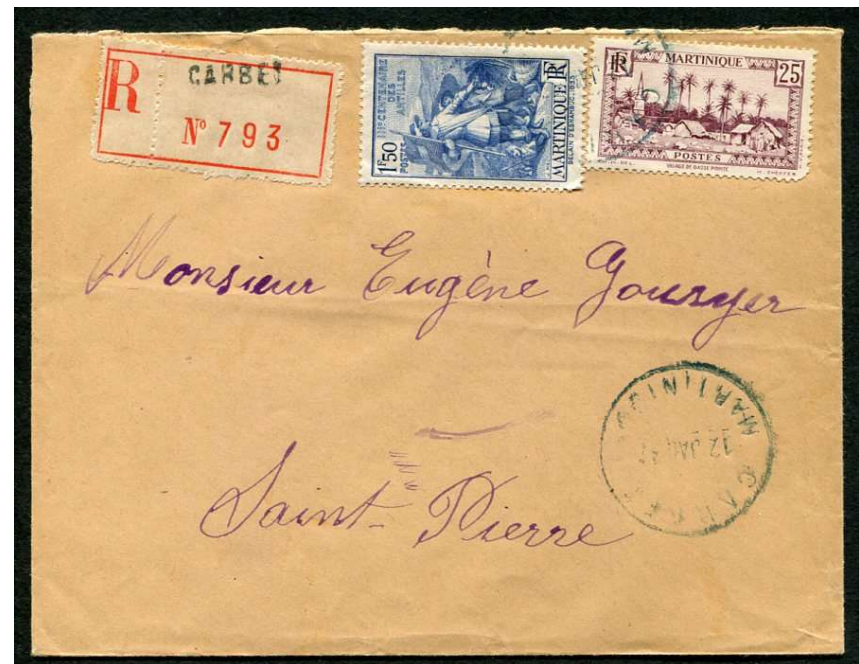 R
CARBET
N° 793
1F50
POSTES
IIIe CENTENAIRE
DES
ANTILLES
MARTINIQUE RF
RF MARTINIQUE 25
POSTES
VILLAGE DE BASSE POINTE
Monsieur Eugène
Saint-Pierre
MARTINIQUE
12 JAN
CARBET